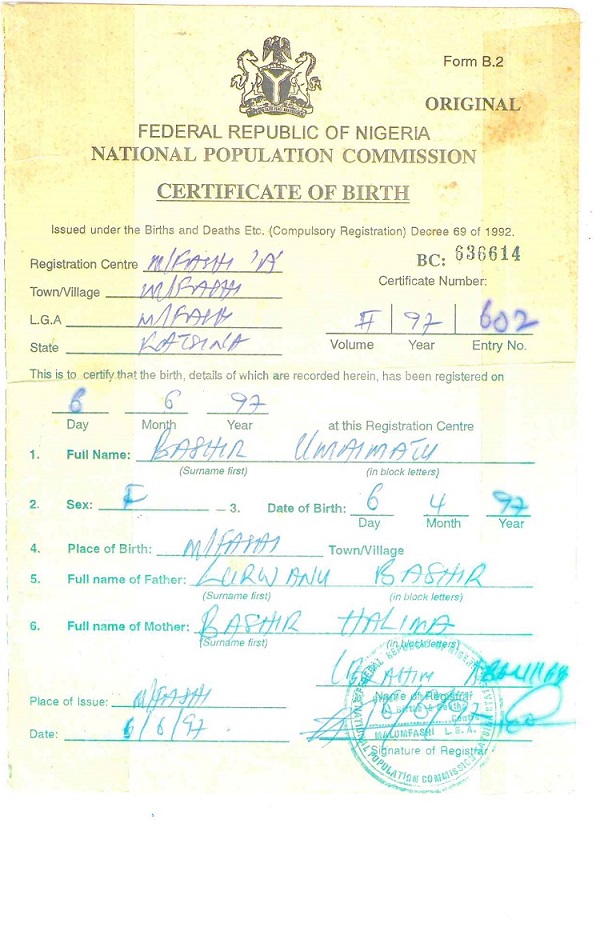 Form B.2
ORIGINAL
FEDERAL REPUBLIC OF NIGERIA
NATIONAL POPULATION COMMISSION
CERTIFICATE OF BIRTH
Issued under the Births and Deaths Etc. (Compulsory Registration) Decree 69 of 1992.
Registration Centre M/FASHI 'A'
BC: 636614
Certificate Number:
Town/Village M/FASHI
L.G.A M/FASHI
II 97 602
State KATSINA
Volume Year Entry No.
This is to certify that the birth, details of which are recorded herein, has been registered on
6 6 97
Day Month Year at this Registration Centre
1. Full Name: BASHIR UMAIMATU
(Surname first) (in block letters)
2. Sex: F 3. Date of Birth: 6 4 97
Day Month Year
4. Place of Birth: M/FASHI Town/Village
5. Full name of Father: LURWANU BASHIR
(Surname first) (in block letters)
6. Full name of Mother: BASHIR HALIMA
(Surname first) (in block letters)
Name of Registrar
Place of Issue: M/FASHI
MALUMFASHI L.G.A.
Date: 6/6/97
Signature of Registrar
NATIONAL POPULATION COMMISSION